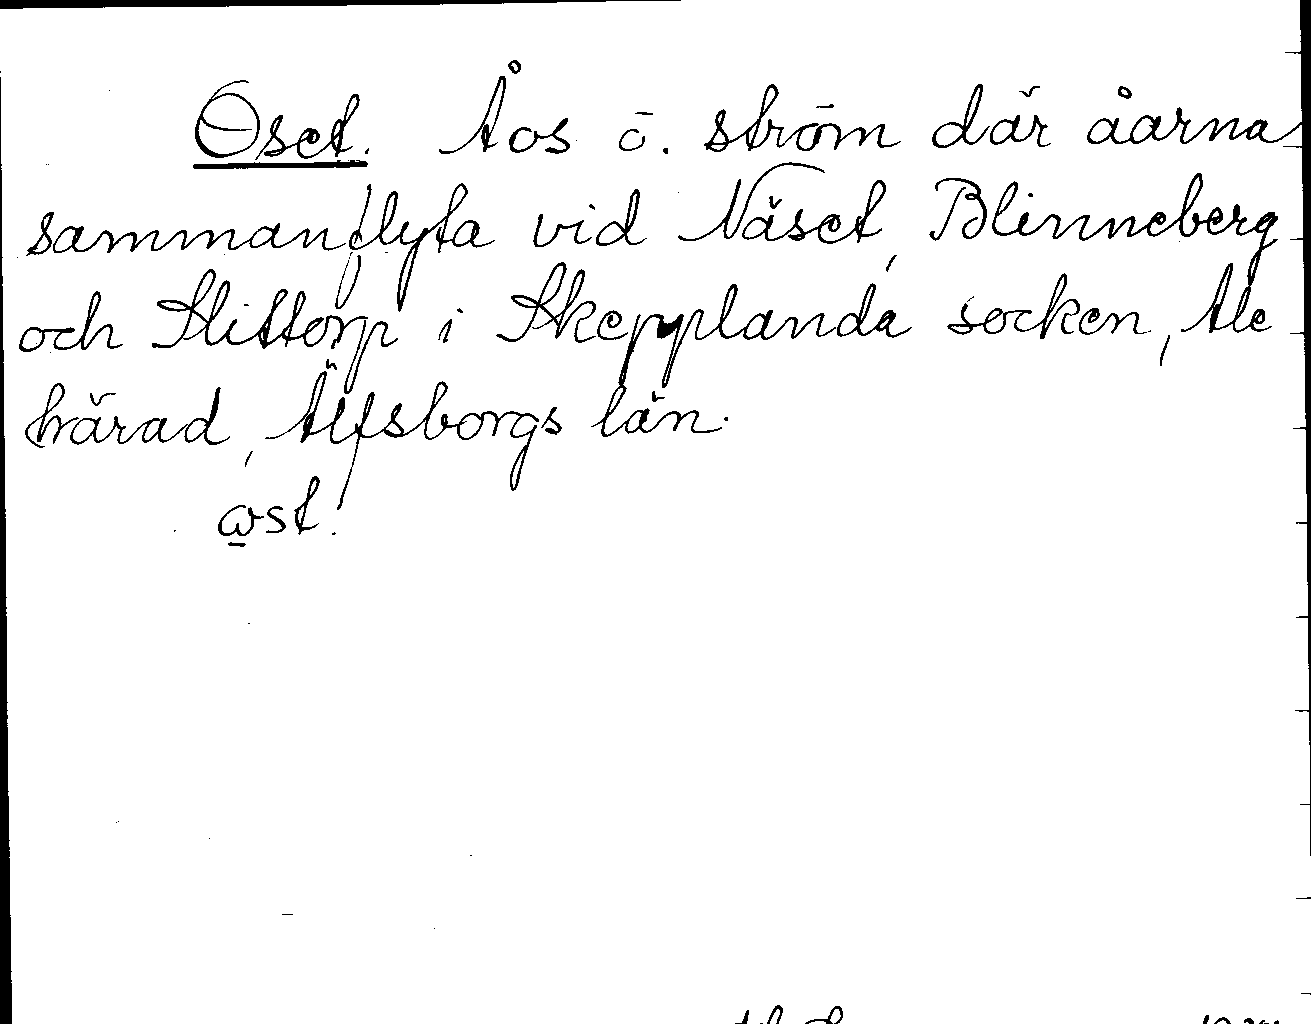 Oset. Åos o. ström där åarna
sammanflyta vid Näset, Blinneberg
och Slittorp i Skepplanda socken, Ale
härad, Älfsborgs län.